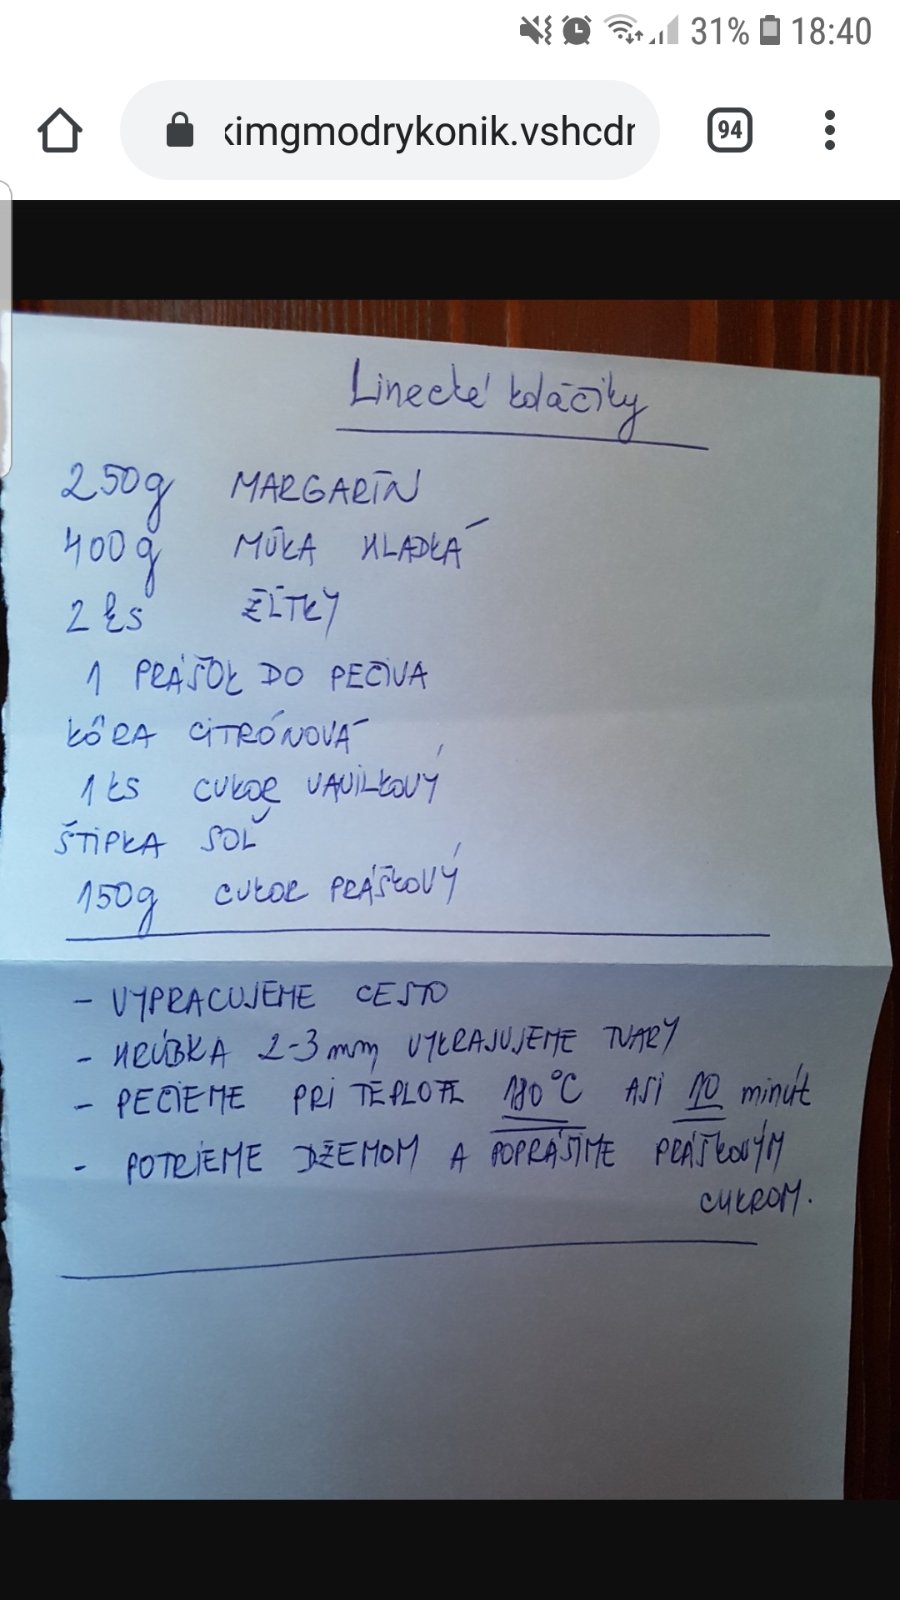 31% 18:40
ximgmodrykonik.vshcdn
94
Linecké koláčiky
250g MARGARÍN
400g MÚKA HLADKÁ
2 ks ŽĹTKY
1 PRÁŠOK DO PEČIVA
KÔRA CITRÓNOVÁ
1 KS CUKOR VANILKOVÝ
ŠTIPKA SOĽ
150g CUKOR PRÁŠKOVÝ
- VYPRACUJEME CESTO
- HRÚBKA 2-3 mm, VYKRAJUJEME TVARY
- PEČIEME PRI TEPLOTE 180°C ASI 10 minút
- POTRIEME DŽEMOM A POPRÁŠIME PRÁŠKOVÝM
CUKROM.